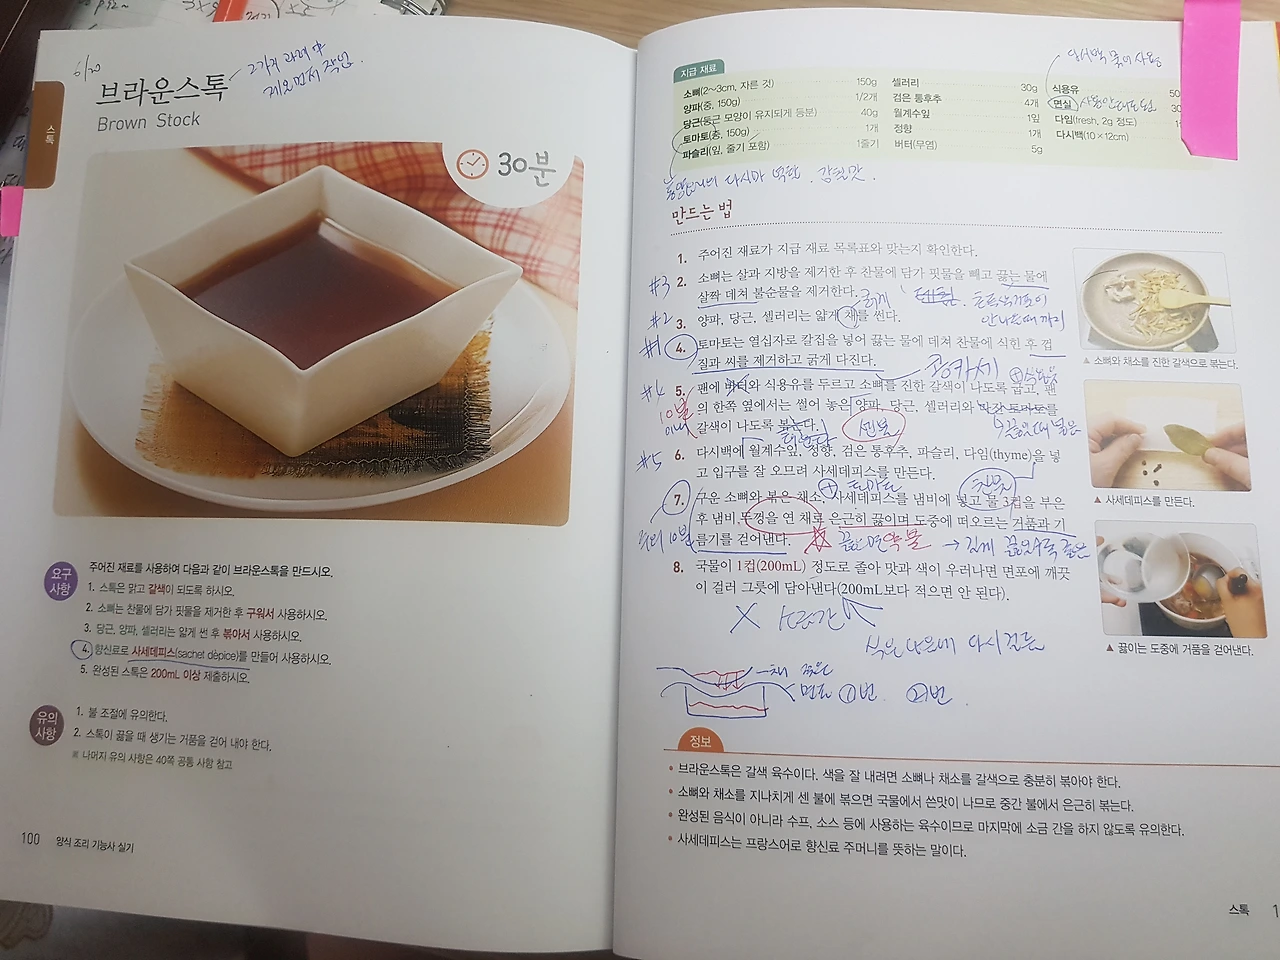 6/20
브라운스톡
2가지 과제 中
제일먼저 작업
Brown Stock
스톡
30분
요구
사항
주어진 재료를 사용하여 다음과 같이 브라운스톡을 만드시오.
1. 스톡은 맑고 갈색이 되도록 하시오.
2. 소뼈는 찬물에 담가 핏물을 제거한 후 구워서 사용하시오.
3. 당근, 양파, 셀러리는 얇게 썬 후 볶아서 사용하시오.
4. 향신료로 사세데피스(sachet dépice)를 만들어 사용하시오.
5. 완성된 스톡은 200mL 이상 제출하시오.
유의
사항
1. 불 조절에 유의한다.
2. 스톡이 끓을 때 생기는 거품을 걷어 내야 한다.
※ 나머지 유의 사항은 40쪽 공통 사항 참고
100 양식 조리 기능사 실기
지급 재료
소뼈(2~3cm, 자른 것) 150g
양파(중, 150g) 1/2개
당근(둥근 모양이 유지되게 등분) 40g
토마토(중, 150g) 1개
파슬리(잎, 줄기 포함) 1줄기
셀러리 30g
검은 통후추 4개
월계수잎 1잎
정향 1개
버터(무염) 5g
식용유 50
면실 30
사용안해도됨
다임(fresh, 2g 정도) 1
다시백(10×12cm)
다시마 역할. 감칠맛.
만드는 법
1. 주어진 재료가 지급 재료 목록표와 맞는지 확인한다.
#3 2. 소뼈는 살과 지방을 제거한 후 찬물에 담가 핏물을 빼고 끓는 물에
살짝 데쳐 불순물을 제거한다.
굵게
안나올때까지
#2 3. 양파, 당근, 셀러리는 얇게 채를 썬다.
#1 4. 토마토는 열십자로 칼집을 넣어 끓는 물에 데쳐 찬물에 식힌 후 껍
질과 씨를 제거하고 굵게 다진다.
콩카세
#4 5. 팬에 버터와 식용유를 두르고 소뼈를 진한 갈색이 나도록 굽고, 팬
의 한쪽 옆에서는 썰어 놓은 양파, 당근, 셀러리와 다진 토마토를
갈색이 나도록 볶는다.
센불
#5 6. 다시백에 월계수잎, 정향, 검은 통후추, 파슬리, 다임(thyme)을 넣
고 입구를 잘 오므려 사세데피스를 만든다.
+ 토마토
찬물
7. 구운 소뼈와 볶은 채소, 사세데피스를 냄비에 넣고 물 3컵을 부은
후 냄비 뚜껑을 연 채로 은근히 끓이며 도중에 떠오르는 거품과 기
름기를 걷어낸다.
끓으면 약불 → 길게 끓일수록 좋은
8. 국물이 1컵(200mL) 정도로 졸아 맛과 색이 우러나면 면포에 깨끗
이 걸러 그릇에 담아낸다(200mL보다 적으면 안 된다).
X 소금간
식은 다음에 다시 걸름
면포 ①번 ②번
▲ 소뼈와 채소를 진한 갈색으로 볶는다.
▲ 사세데피스를 만든다.
▲ 끓이는 도중에 거품을 걷어낸다.
정보
• 브라운스톡은 갈색 육수이다. 색을 잘 내려면 소뼈나 채소를 갈색으로 충분히 볶아야 한다.
• 소뼈와 채소를 지나치게 센 불에 볶으면 국물에서 쓴맛이 나므로 중간 불에서 은근히 볶는다.
• 완성된 음식이 아니라 수프, 소스 등에 사용하는 육수이므로 마지막에 소금 간을 하지 않도록 유의한다.
• 사세데피스는 프랑스어로 향신료 주머니를 뜻하는 말이다.
스톡 1